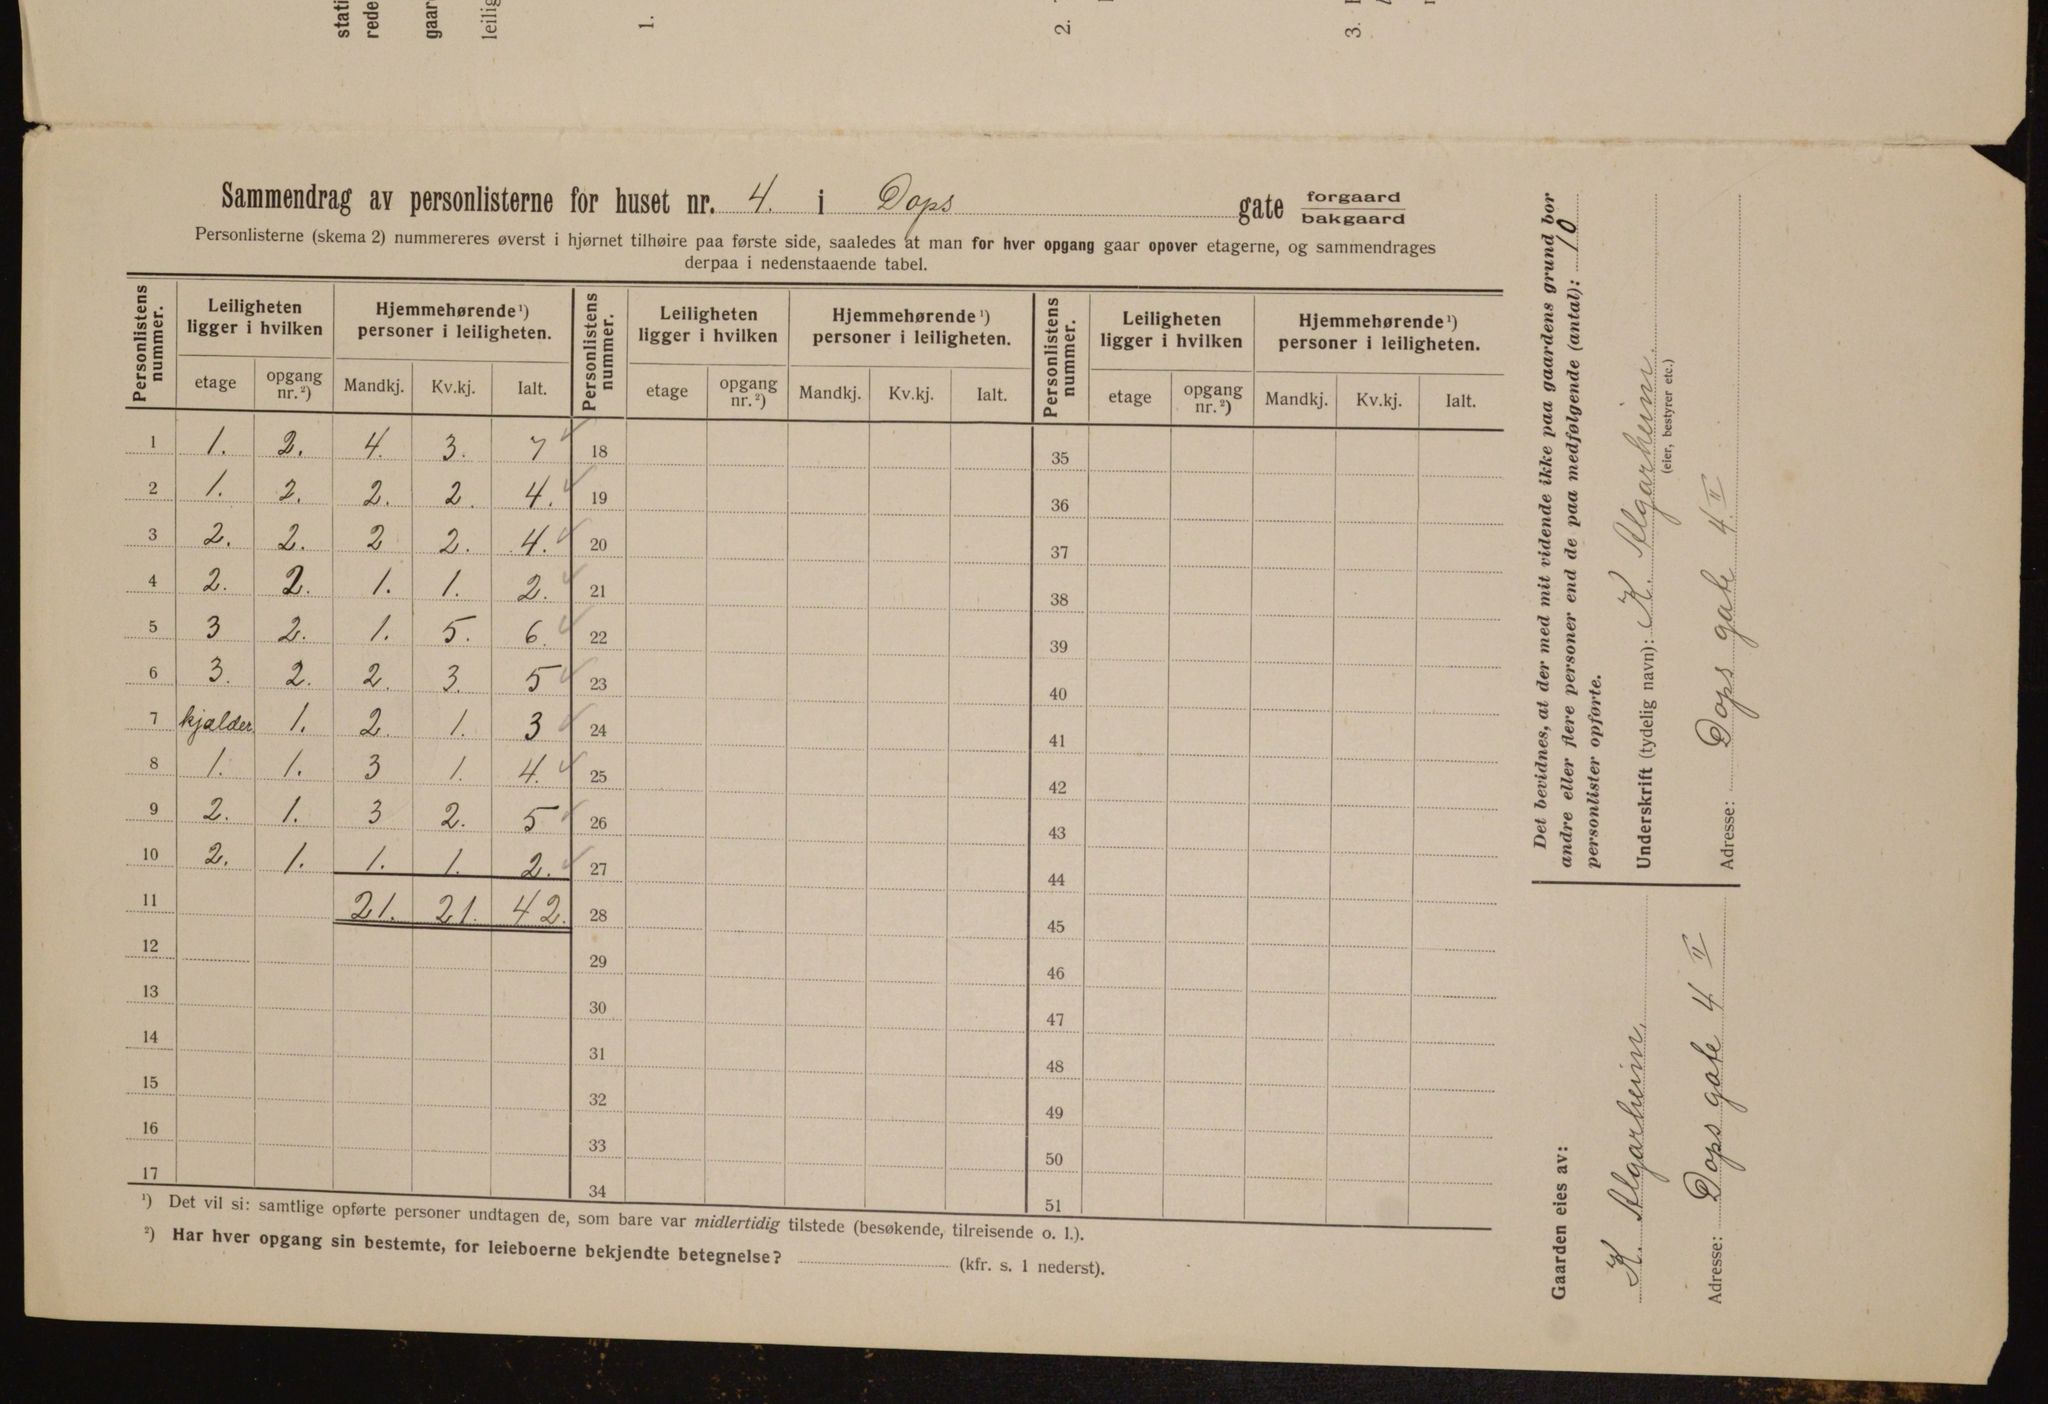 stati
rede
gaar
leilig
1.
2.
3.
Sammendrag av personlisterne for huset nr. 4. i Dops gate forgaard
bakgaard
Personlisterne (skema 2) nummereres øverst i hjørnet tilhøire paa første side, saaledes at man for hver opgang gaar opover etagerne, og sammendrages
derpaa i nedenstaaende tabel.
Personlistens nummer. Leiligheten ligger i hvilken Hjemmehørende ¹) personer i leiligheten. Personlistens nummer. Leiligheten ligger i hvilken Hjemmehørende ¹) personer i leiligheten. Personlistens nummer. Leiligheten ligger i hvilken Hjemmehørende ¹) personer i leiligheten.
etage opgang nr. ²) Mandkj. Kv.kj. Ialt. etage opgang nr. ²) Mandkj. Kv.kj. Ialt. etage opgang nr. ²) Mandkj. Kv.kj. Ialt.
1 1. 2. 4. 3. 7 ✓ 18 35
2 1. 2. 2. 2. 4. ✓ 19 36
3 2. 2. 2 2. 4. ✓ 20 37
4 2. 2. 1. 1. 2. ✓ 21 38
5 3 2. 1. 5. 6. ✓ 22 39
6 3. 2. 2. 3. 5 ✓ 23 40
7 kjælder 1. 2. 1. 3 ✓ 24 41
8 1. 1. 3 1. 4. ✓ 25 42
9 2. 1. 3 2. 5 ✓ 26 43
10 2. 1. 1. 1. 2. ✓ 27 44
11 21. 21. 42. 28 45
12 29 46
13 30 47
14 31 48
15 32 49
16 33 50
17 34 51
¹) Det vil si: samtlige opførte personer undtagen de, som bare var midlertidig tilstede (besøkende, tilreisende o. l.).
²) Har hver opgang sin bestemte, for leieboerne bekjendte betegnelse? (kfr. s. 1 nederst).
Det bevidnes, at der med mit vidende ikke paa gaardens grund bor
andre eller flere personer end de paa medfølgende (antal): 10
personlister opførte.
Underskrift (tydelig navn): K. Algarheim.
(eier, bestyrer etc.)
Adresse: Dops gate 4 II
Gaarden eies av:
K. Algarheim.
Adresse: Dops gate 4 II